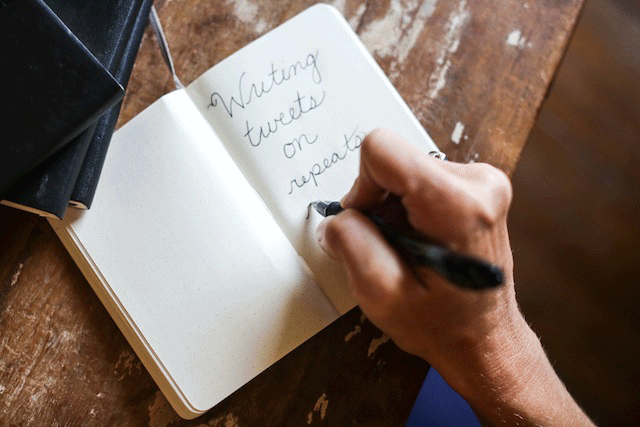 Writing
tweets
on
repeats